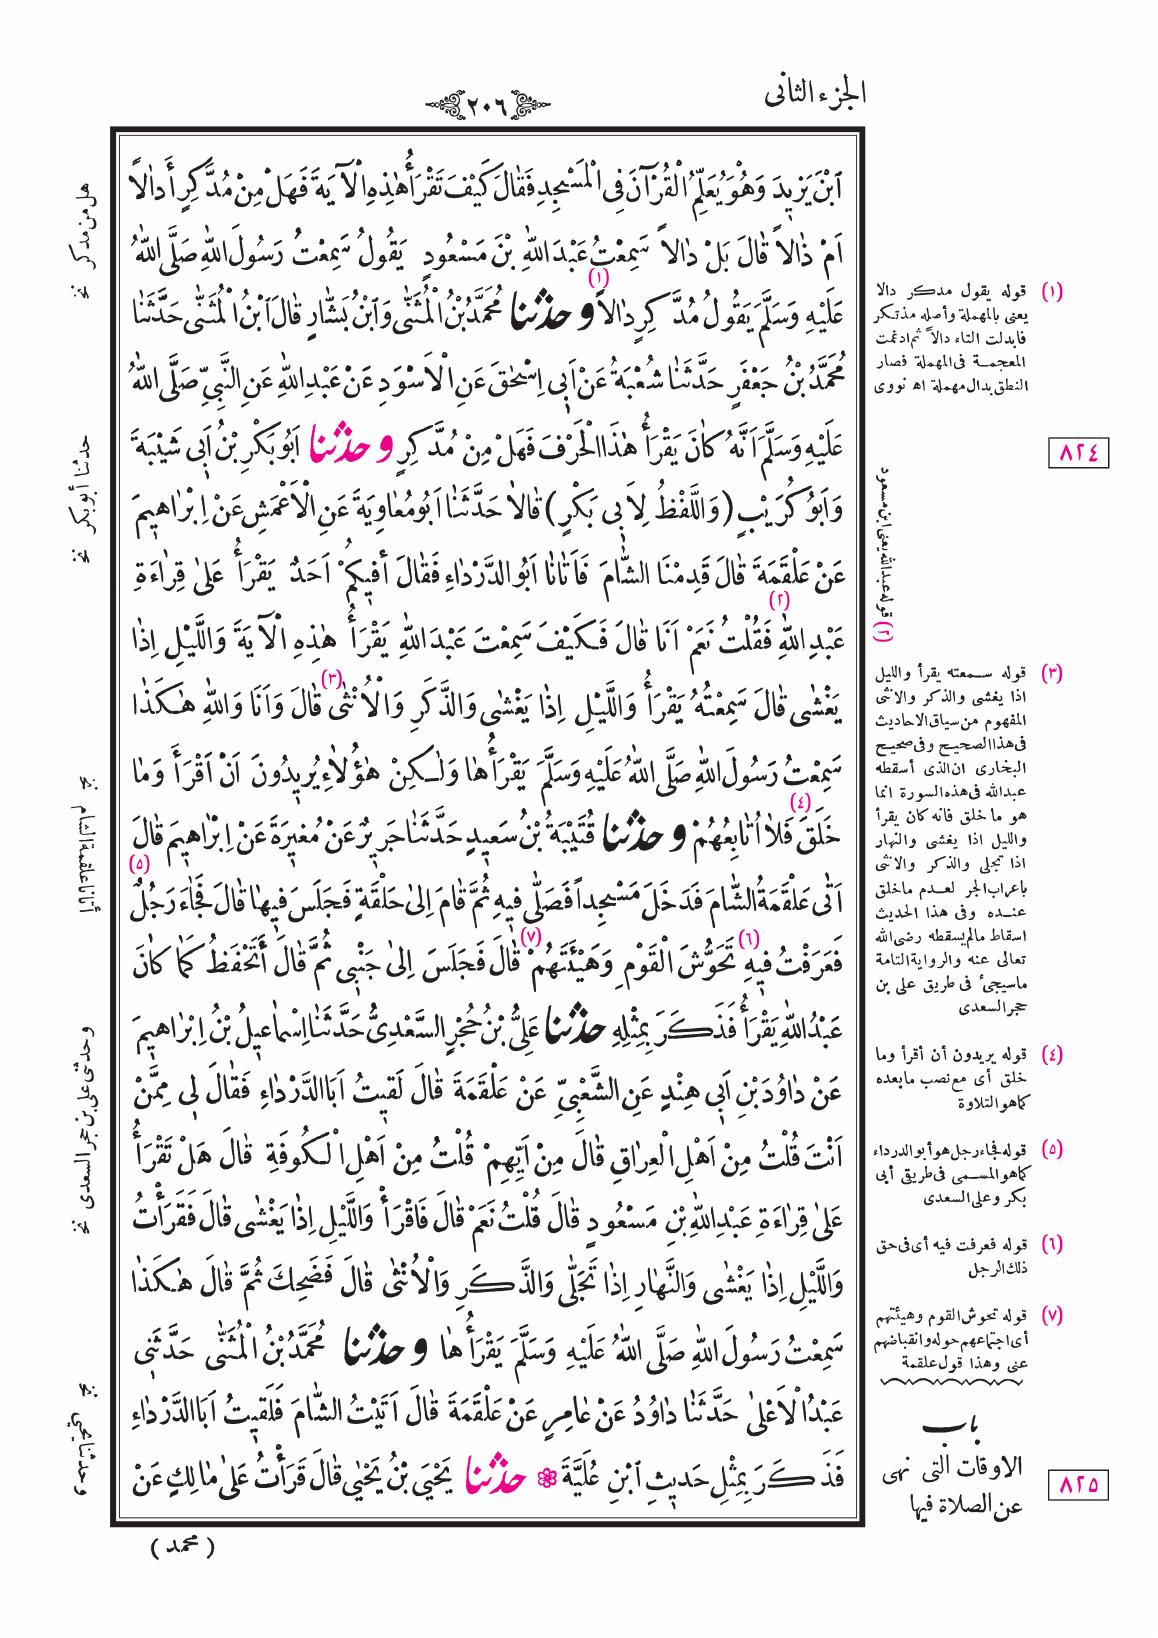 الجزء الثانى
٢٠٦
ابْنَ يَزِيدَ وَهُوَ يُعَلِّمُ الْقُرْآنَ فِى الْمَسْجِدِ فَقَالَ كَيْفَ تَقْرَأُ هٰذِهِ الْآيَةَ فَهَلْ مِنْ مُدَّكِرٍ أَدَالاً
اَمْ ذَالاً قَالَ بَلْ دَالاً سَمِعْتُ عَبْدَ اللهِ بْنَ مَسْعُودٍ يَقُولُ سَمِعْتُ رَسُولَ اللهِ صَلَّى اللهُ
عَلَيْهِ وَسَلَّمَ يَقُولُ مُدَّكِرٍ دَالاً (١) و حدثنا مُحَمَّدُ بْنُ الْمُثَنّٰى وَابْنُ بَشَّارٍ قَالَ ابْنُ الْمُثَنّٰى حَدَّثَنَا
مُحَمَّدُ بْنُ جَعْفَرٍ حَدَّثَنَا شُعْبَةُ عَنْ اَبِى اِسْحٰقَ عَنِ الْاَسْوَدِ عَنْ عَبْدِ اللهِ عَنِ النَّبِىِّ صَلَّى اللهُ
عَلَيْهِ وَسَلَّمَ اَنَّهُ كَانَ يَقْرَأُ هٰذَا الْحَرْفَ فَهَلْ مِنْ مُدَّكِرٍ و حدثنا اَبُو بَكْرِ بْنُ اَبِى شَيْبَةَ
وَاَبُو كُرَيْبٍ (وَاللَّفْظُ لِاَبِى بَكْرٍ) قَالاَ حَدَّثَنَا اَبُو مُعَاوِيَةَ عَنِ الْاَعْمَشِ عَنْ اِبْرَاهِيمَ
عَنْ عَلْقَمَةَ قَالَ قَدِمْنَا الشَّامَ فَاَتَانَا اَبُو الدَّرْدَاءِ فَقَالَ أَفِيكُمْ اَحَدٌ يَقْرَأُ عَلىٰ قِرَاءَةِ
عَبْدِ اللهِ (٢) فَقُلْتُ نَعَمْ اَنَا قَالَ فَكَيْفَ سَمِعْتَ عَبْدَ اللهِ يَقْرَأُ هٰذِهِ الْآيَةَ وَاللَّيْلِ اِذَا
يَغْشٰى قَالَ سَمِعْتُهُ يَقْرَأُ وَاللَّيْلِ اِذَا يَغْشٰى وَالذَّكَرِ وَالْاُنْثٰى (٣) قَالَ وَاَنَا وَاللهِ هٰكَذَا
سَمِعْتُ رَسُولَ اللهِ صَلَّى اللهُ عَلَيْهِ وَسَلَّمَ يَقْرَأُهَا وَلٰكِنْ هٰؤُلاَءِ يُرِيدُونَ اَنْ اَقْرَأَ وَمَا
خَلَقَ (٤) فَلاَ اُتَابِعُهُمْ و حدثنا قُتَيْبَةُ بْنُ سَعِيدٍ حَدَّثَنَا جَرِيرٌ عَنْ مُغِيرَةَ عَنْ اِبْرَاهِيمَ قَالَ
اَتٰى عَلْقَمَةُ الشَّامَ فَدَخَلَ مَسْجِداً فَصَلّٰى فِيهِ ثُمَّ قَامَ اِلىٰ حَلْقَةٍ فَجَلَسَ فِيهَا قَالَ فَجَاءَ رَجُلٌ (٥)
فَعَرَفْتُ فِيهِ (٦) تَحَوُّشَ الْقَوْمِ وَهَيْئَتَهُمْ (٧) قَالَ فَجَلَسَ اِلىٰ جَنْبِى ثُمَّ قَالَ أَتَحْفَظُ كَمَا كَانَ
عَبْدُ اللهِ يَقْرَأُ فَذَكَرَ بِمِثْلِهِ حدثنا عَلِىُّ بْنُ حُجْرٍ السَّعْدِىُّ حَدَّثَنَا اِسْمَاعِيلُ بْنُ اِبْرَاهِيمَ
عَنْ دَاوُدَ بْنِ اَبِى هِنْدٍ عَنِ الشَّعْبِىِّ عَنْ عَلْقَمَةَ قَالَ لَقِيتُ اَبَا الدَّرْدَاءِ فَقَالَ لِى مِمَّنْ
اَنْتَ قُلْتُ مِنْ اَهْلِ الْعِرَاقِ قَالَ مِنْ اَيِّهِمْ قُلْتُ مِنْ اَهْلِ الْكُوفَةِ قَالَ هَلْ تَقْرَأُ
عَلىٰ قِرَاءَةِ عَبْدِ اللهِ بْنِ مَسْعُودٍ قَالَ قُلْتُ نَعَمْ قَالَ فَاقْرَأْ وَاللَّيْلِ اِذَا يَغْشٰى قَالَ فَقَرَأْتُ
وَاللَّيْلِ اِذَا يَغْشٰى وَالنَّهَارِ اِذَا تَجَلّٰى وَالذَّكَرِ وَالْاُنْثٰى قَالَ فَضَحِكَ ثُمَّ قَالَ هٰكَذَا
سَمِعْتُ رَسُولَ اللهِ صَلَّى اللهُ عَلَيْهِ وَسَلَّمَ يَقْرَأُهَا و حدثنا مُحَمَّدُ بْنُ الْمُثَنّٰى حَدَّثَنِى
عَبْدُ الْاَعْلىٰ حَدَّثَنَا دَاوُدُ عَنْ عَامِرٍ عَنْ عَلْقَمَةَ قَالَ اَتَيْتُ الشَّامَ فَلَقِيتُ اَبَا الدَّرْدَاءِ
فَذَكَرَ بِمِثْلِ حَدِيثِ ابْنِ عُلَيَّةَ ۞ حدثنا يَحْيَى بْنُ يَحْيٰى قَالَ قَرَأْتُ عَلىٰ مَالِكٍ عَنْ
( محمد )
(١) قوله يقول مدكر دالا
يعنى بالمهملة وأصله مذتكر
فابدلت التاء دالاً ثم ادغمت
المعجمة فى المهملة فصار
النطق بدال مهملة اه نووى
٨٢٤
(٢) قوله عبدالله يعنى ابن مسعود
(٣) قوله سمعته يقرأ والليل
اذا يغشى والذكر والانثى
المفهوم من سياق الاحاديث
فى هذا الصحيح وفى صحيح
البخارى ان الذى أسقطه
عبدالله فى هذه السورة انما
هو ما خلق فانه كان يقرأ
والليل اذا يغشى والنهار
اذا تجلى والذكر والانثى
باعراب الجر لعدم ماخلق
عنده وفى هذا الحديث
اسقاط مالم يسقطه رضى الله
تعالى عنه والرواية التامة
ماسيجئ فى طريق على بن
حجر السعدى
(٤) قوله يريدون أن أقرأ وما
خلق أى مع نصب ما بعده
كما هو التلاوة
(٥) قوله فجاء رجل هو أبو الدرداء
كما هو المسمى فى طريقى أبى
بكر وعلى السعدى
(٦) قوله فعرفت فيه أى فى حق
ذلك الرجل
(٧) قوله تحوش القوم وهيئتهم
أى اجتماعهم حوله وانقباضهم
عنى وهذا قول علقمة
باب
الاوقات التى نهى
عن الصلاة فيها
٨٢٥
هل من مدكر نخ
حدثنا أبو بكر نخ
أتانا علقمة الشام نخ
وحدثنى على بن حجر السعدى نخ
وحدثنا يحيى نخ